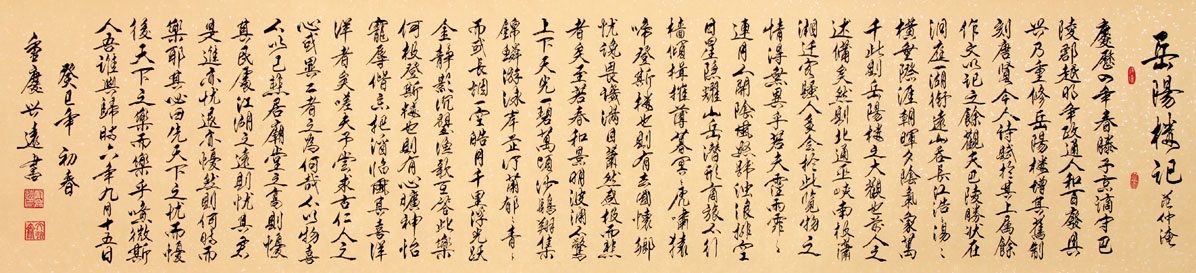 岳陽樓記 范仲淹
慶曆四年春滕子京謫守巴
陵郡越明年政通人和百廢具
興乃重修岳陽樓增其舊制
刻唐賢今人詩賦於其上屬餘
作文以記之餘觀夫巴陵勝狀在
洞庭一湖銜遠山吞長江浩〻湯〻
橫無際涯朝暉夕陰氣象萬
千此則岳陽樓之大觀也前人之
述備矣然則北通巫峽南極瀟
湘遷客騷人多會於此覽物之
情得無異乎若夫霪雨霏〻
連月不開陰風怒號濁浪排空
日星隱耀山岳潛形商旅不行
檣傾楫摧薄暮冥〻虎嘯猿
啼登斯樓也則有去國懷鄉
憂讒畏譏滿目蕭然感極而悲
者矣至若春和景明波瀾不驚
上下天光一碧萬頃沙鷗翔集
錦鱗游泳岸芷汀蘭郁〻青〻
而或長煙一空皓月千里浮光躍
金靜影沉璧漁歌互答此樂
何極登斯樓也則有心曠神怡
寵辱偕忘把酒臨風其喜洋
洋者矣嗟夫予嘗求古仁人之
心或異二者之為何哉不以物喜
不以己悲居廟堂之高則憂
其民處江湖之遠則憂其君
是進亦憂退亦憂然則何時而
樂耶其必曰先天下之憂而憂
後天下之樂而樂乎噫微斯
人吾誰與歸時六年九月十五日
癸巳年初春
重慶世遠書